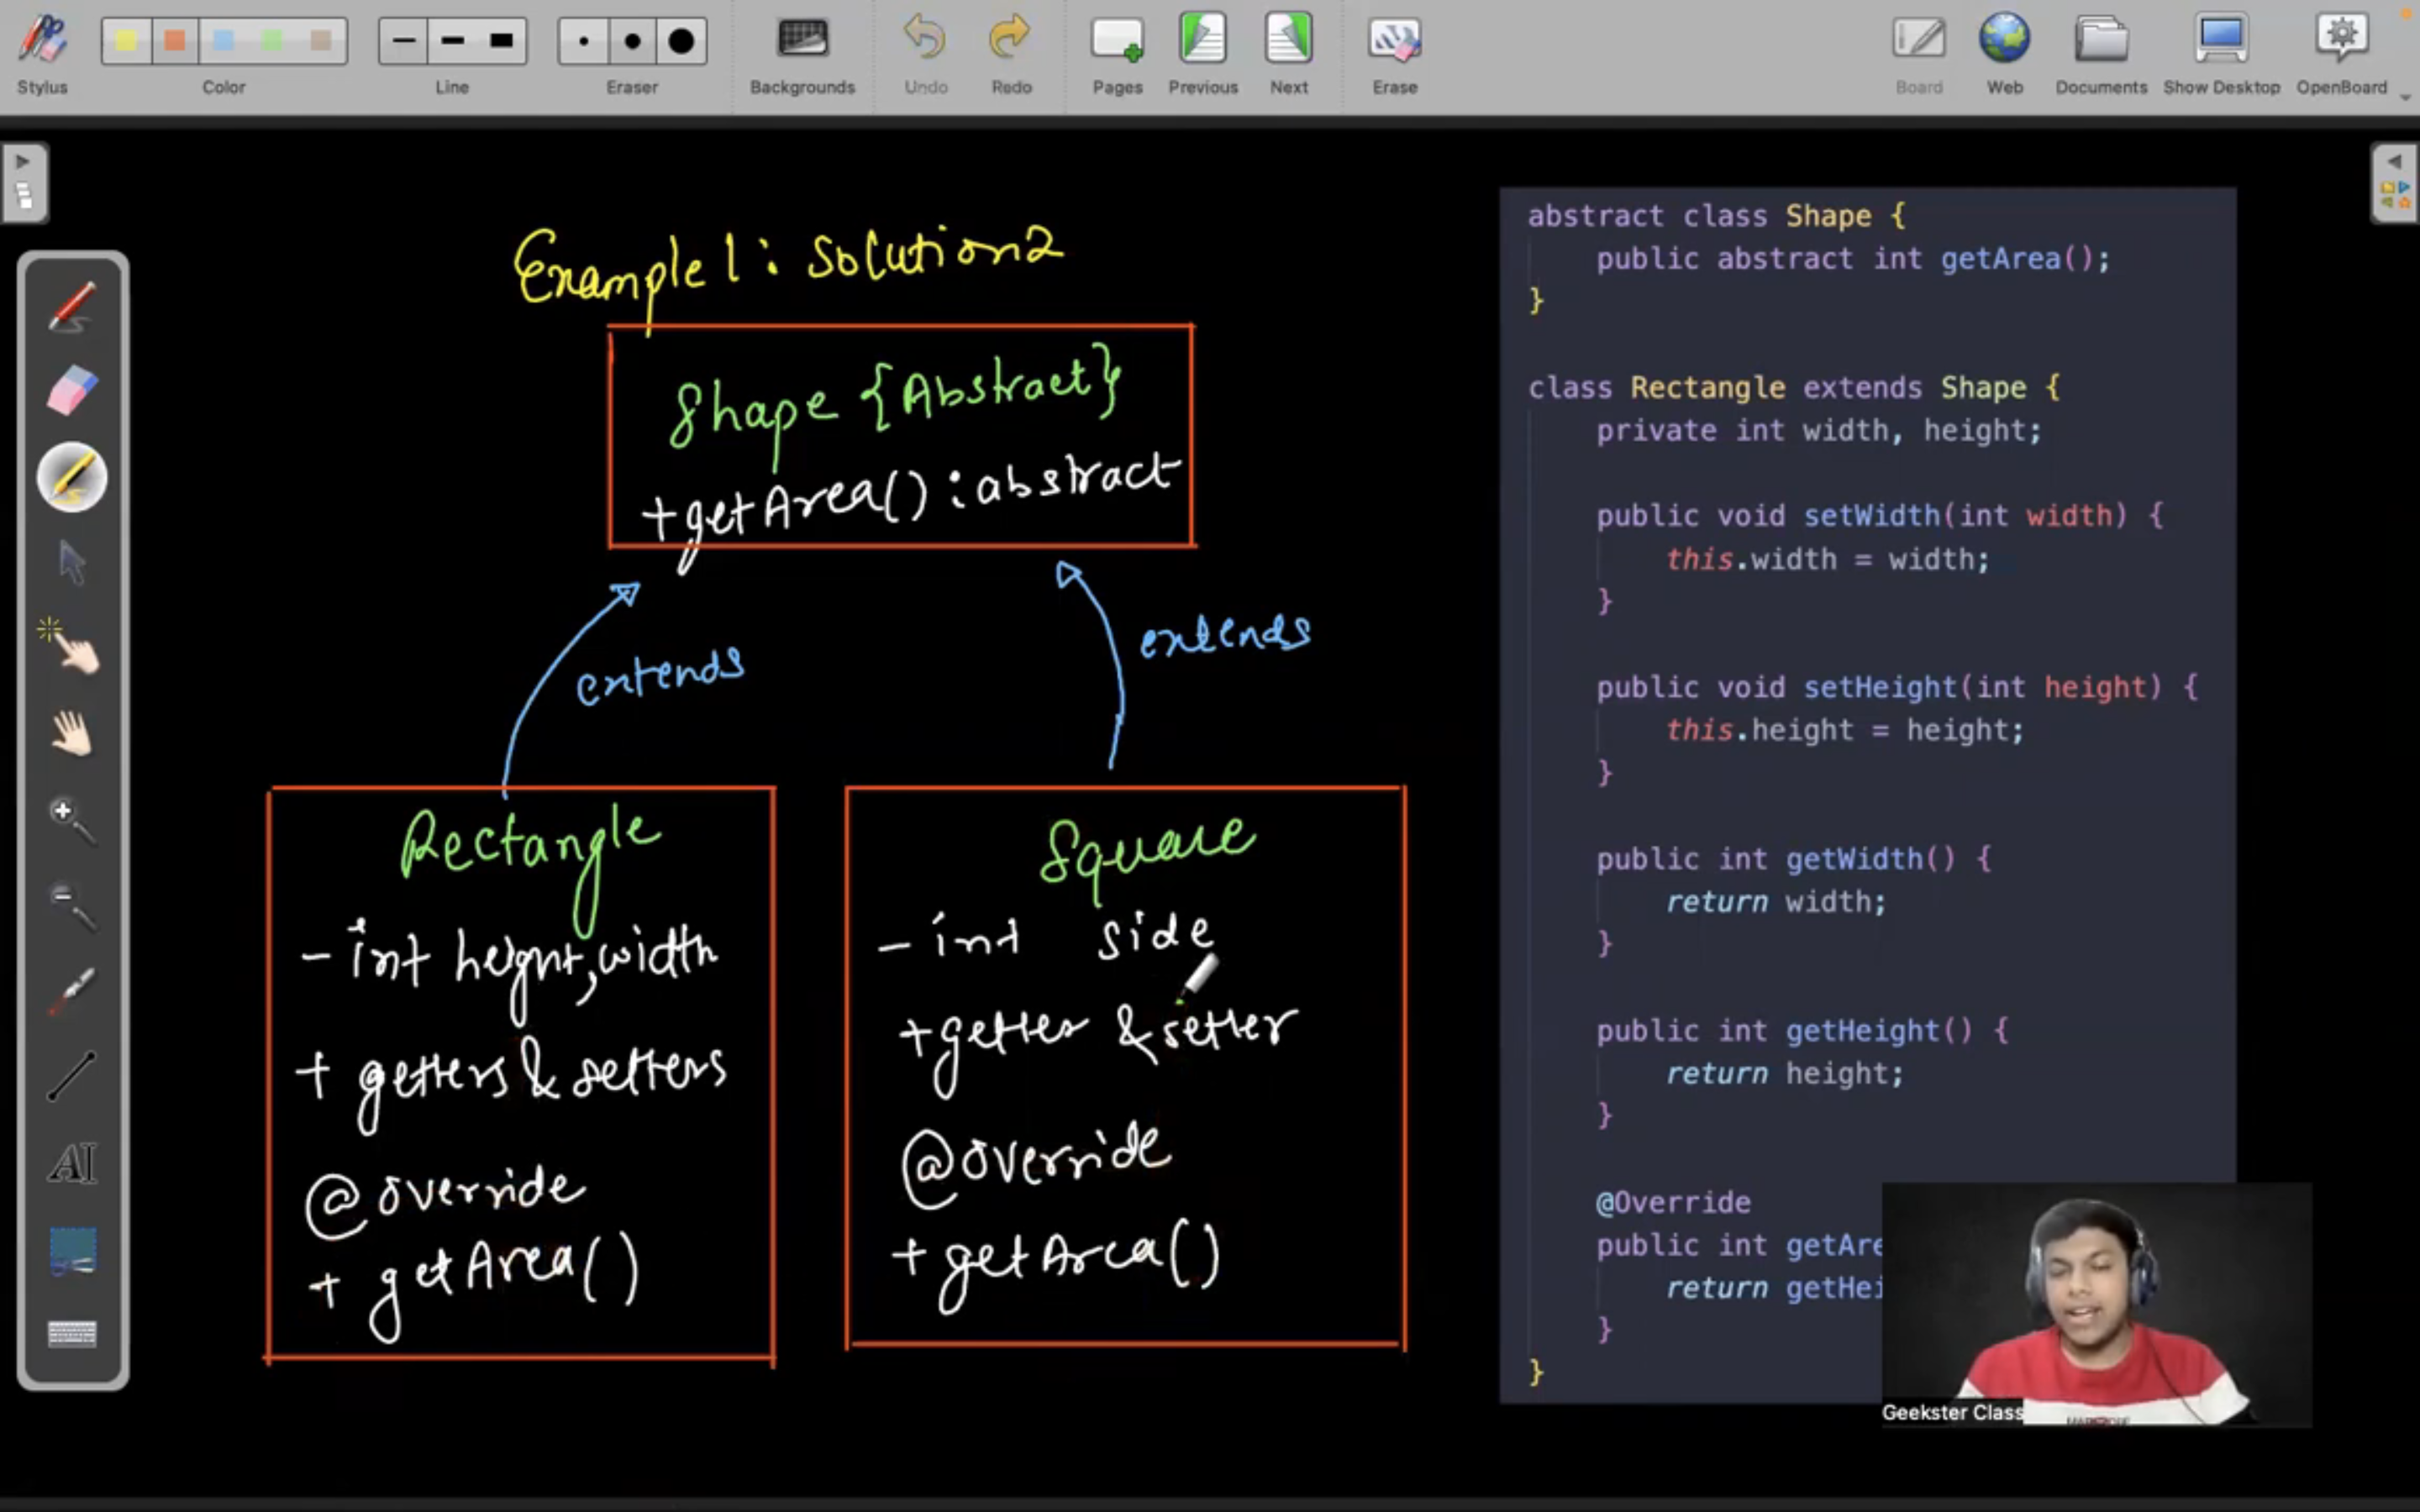 Stylus
Color
Line
Eraser
Backgrounds
Undo
Redo
Pages
Previous
Next
Erase
Board
Web
Documents
Show Desktop
OpenBoard
Example 1 : Solution 2
Shape {Abstract}
+ getArea() : abstract
extends
extends
Rectangle
- int height, width
+ getters & setters
@override
+ getArea()
Square
- int side
+ getter & setter
@override
+ getArea()
abstract class Shape {
public abstract int getArea();
}
class Rectangle extends Shape {
private int width, height;
public void setWidth(int width) {
this.width = width;
}
public void setHeight(int height) {
this.height = height;
}
public int getWidth() {
return width;
}
public int getHeight() {
return height;
}
@Override
public int getAre
return getHei
}
}
AI
Geekster Class